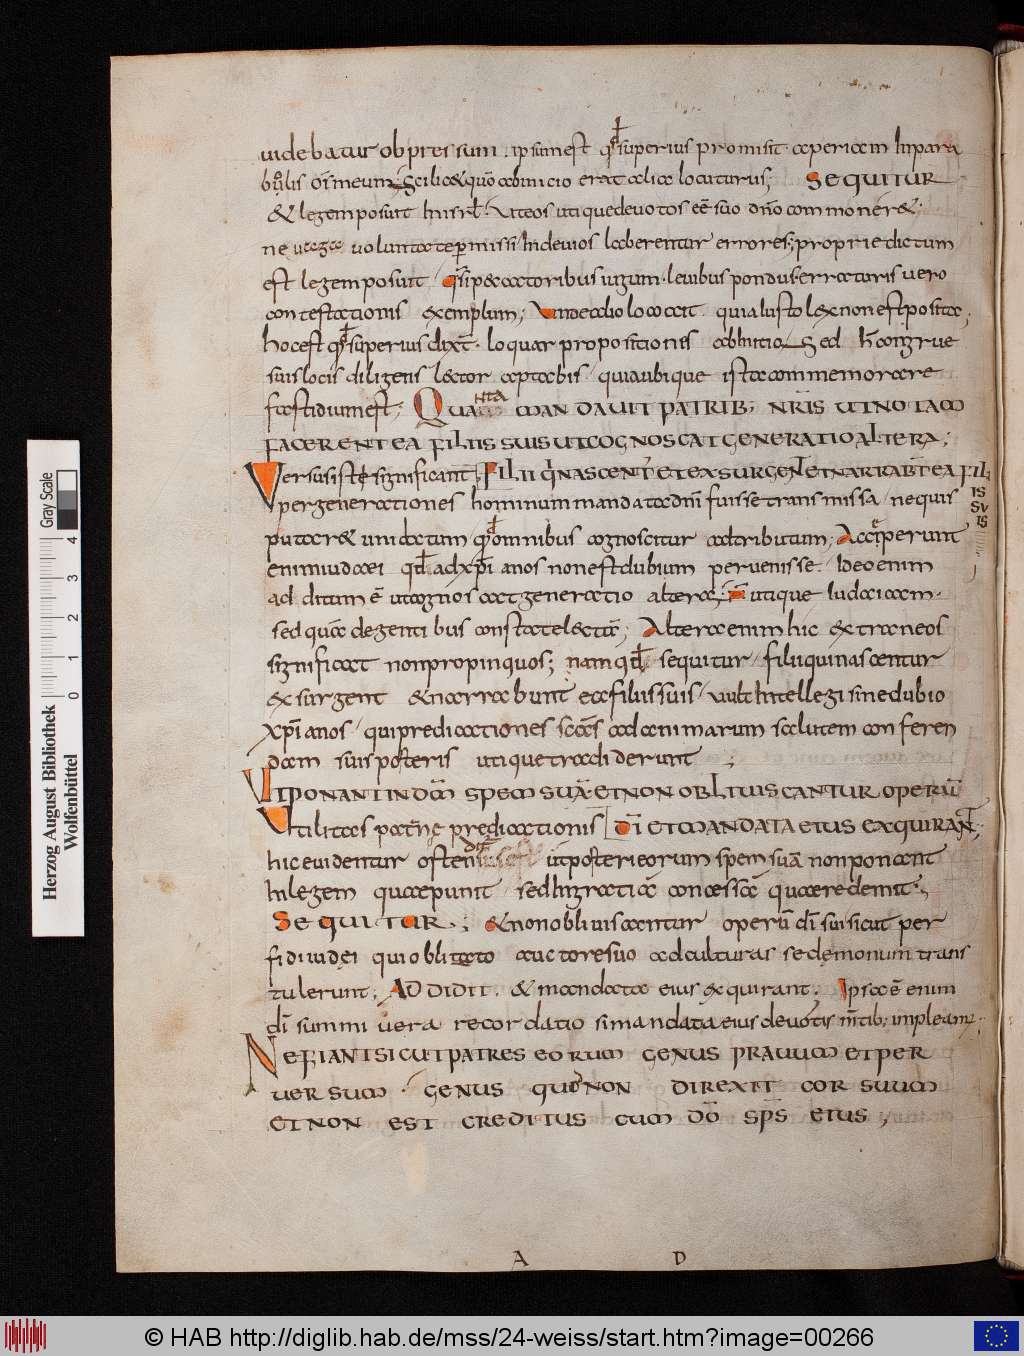 uidebatur obpressum. ipsum est qđ superius promisit aperiam Inpara
bolis os meum, Scilicet quō abinicio erat alia locuturus; SEQUITUR
& legem posuit In isrl. Uteos utique deuotos eē suo dn̄o commoner&;
ne uaga voluntate permissi Indeuios laberentur errores; proprie dictum
est legem posuit / quasi peccatoribus iugum. leuibus pondus. erraturis uero
contestationis exemplum; Undealio loco ait. quia iusto lex non est posita;
hoc est qđ superius dixit. loquar propositiones abInitio. Sed hęc congrue
suis locis diligens lector aptabis / quia ubique ista commemorare
fastidium est; QUANTA MANDAUIT PATRIB; NRIS UT NOTAM
FACERENT EA FILIIS SUIS UT COGNOSCAT GENERATIO ALTERA;
Versus iste significant FILII QUI NASCENT̄ ET EXSURGENT ET NARRABT̄ EA FILI
IS
SU
IS
per generationes hominum mandata dn̄i fuisse transmissa / nequis
putar& uni datum qđ omnibus cognoscitur adtributum; Acceperunt
enim iudaei qđ ad xp̄ianos non est dubium peruenisse. Ideo enim
additum ē ut cognoscat generatio altera; N̄ utique Iudaicam.
sed quā de gentibus constat electā; Altera enim hic extraneos
significat non propinquos; nam qđ sequitur / filii qui nascentur
& exsurgent & narrabunt ea filiis suis / uult Intellegi sine dubio
xp̄ianos / qui predicationes sc̄as ad animarum salutem conferen
dam suis posteris utique tradiderunt;
UT PONANT IN DŌ SPEM SUĀ ET NON OBLIUISCANTUR OPERŪ
Utilitas paternę predicationis DĪ ET MANDATA EIUS EXQUIRANT;
hic euidentur osten ditur ut posteri eorum spem suā non ponant
In legem quae punit / sed In gratiā concessā quae redemit;
SEQUITUR; & non obliuiscantur operū dī sui sicut per
fidi iudei qui oblitato auctore suo ad culturas se demonum trans
tulerunt; ADDIDIT. & mandata eius exquirant; Ipsa ē enim
dī summi uera recordatio si mandata eius deuotis m̄tib; impleant;
NE FIANT SICUT PATRES EORUM GENUS PRAUUM ET PER
UERSUM. GENUS QUOD NON DIREXIT COR SUUM
ET NON EST CREDITUS CUM DŌ SPS EIUS;
A D
Herzog August Bibliothek
Wolfenbüttel
Gray Scale
0 1 2 3 4
© HAB http://diglib.hab.de/mss/24-weiss/start.htm?image=00266